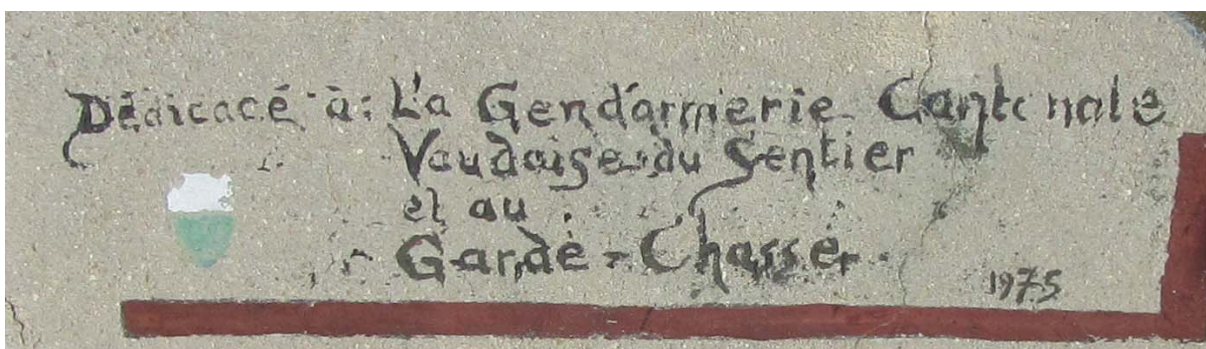 Dédicacé à: La Gendarmerie Cantonale
Vaudoise du Sentier
et au
Garde-Chasse
1975